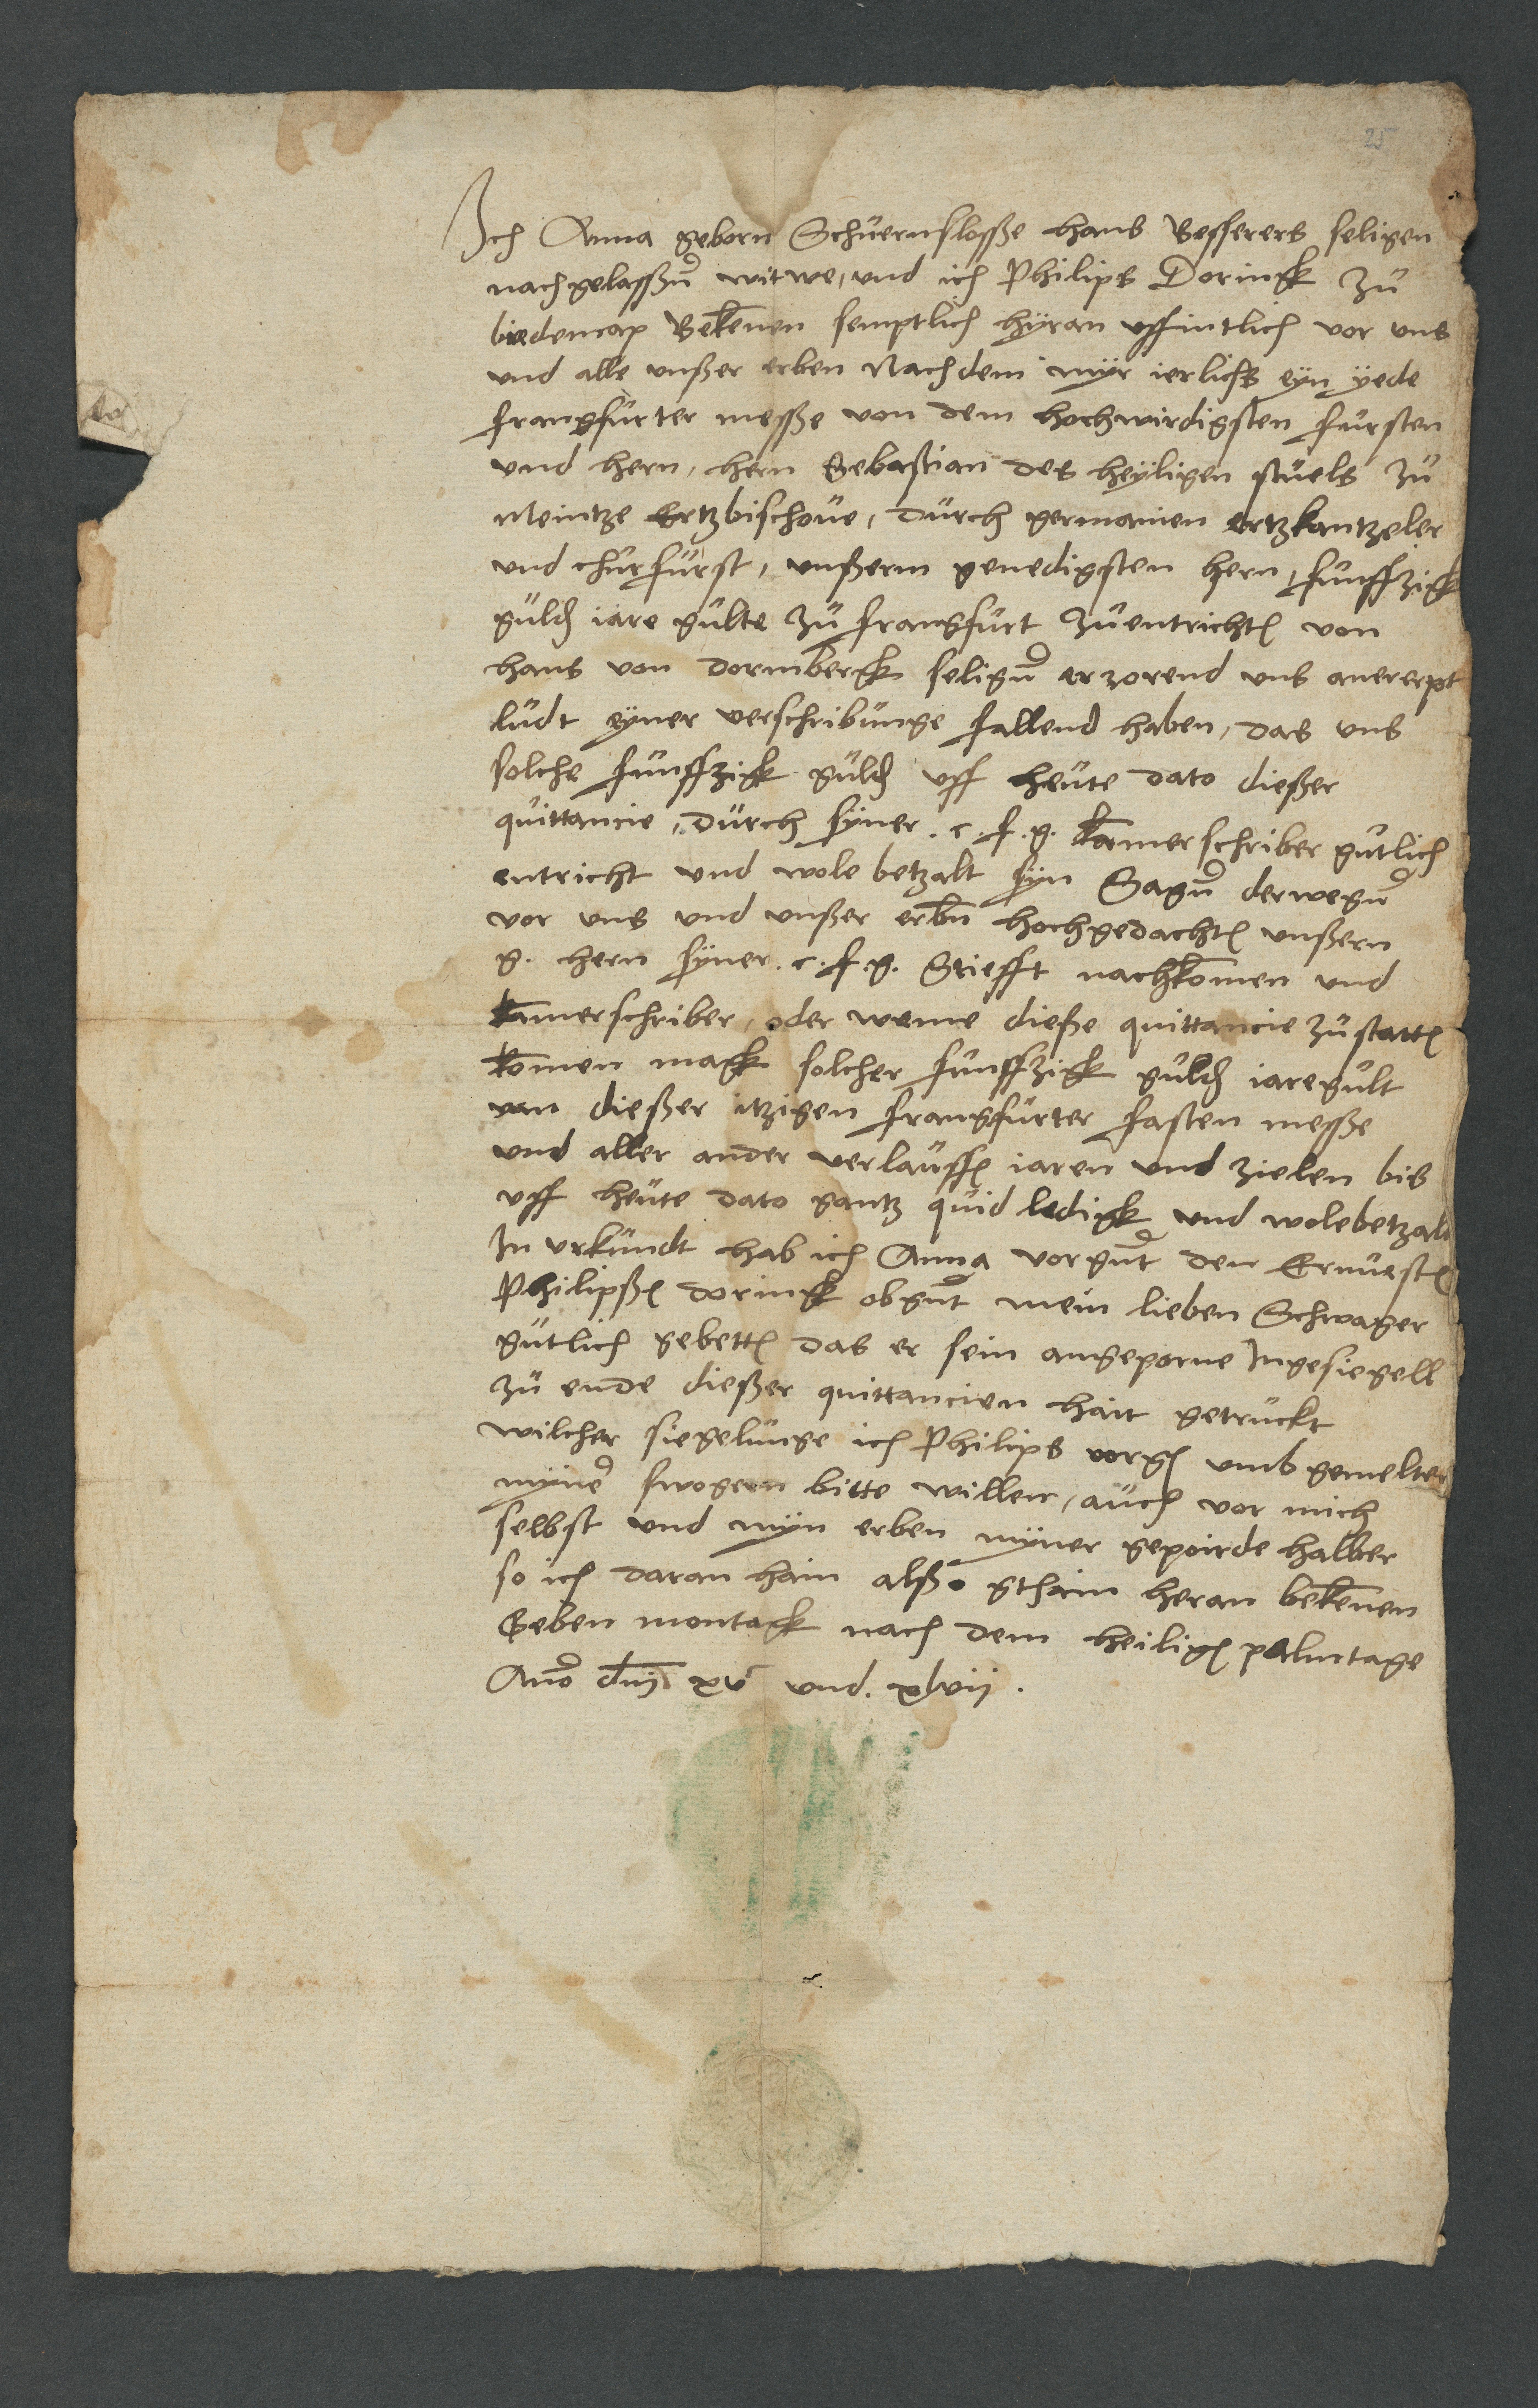 25
Ich Anna geborn Schuernslosße hans Besserers seligen
nachgelassßn witwe, und ich Philips Doringk zu
biedencap Bekenen semptlich hÿran uffintlich vor uns
und alle unßer erben Nach dem mÿr ierlichs eÿn ÿede
frangfurter messße von dem hochwirdigsten fursten
und hern, hern Sebastian des heÿligen stuels zu
Meintze Ertzbischove, durch germanien ertzkantzeler
und churfurst, unßerm genedigsten hern, funffzigk
guld iare gulte zu frangfurt zuentricht von
hans von dornbergk selign uns anererpt
ludt eÿner verschribunge fallend haben, das uns
solche funffzigk guld uff heute dato dießer
quittancie, durch sÿner . c . f . g . kamerschriber gutlich
entricht und wole betzalt sÿn Sagn derwegn
vor uns und unßer erbn hochgedacht unßern
g . hern sÿner . c . f . g . Stiefft nachkomen und
kamerschriber, oder weme dieße quittancie zustatt
komen magk solcher funffzigk guld iaregult
van dießer itzigen frangfurter fasten messße
und aller ander verlauff iaren und zielen bis
uff heute dato gantz quid ledigk und wolebetzalt
In urkundt hab ich Anna vorgnt den Ernvest
Philipß doringk obgnt mein lieben Schwager
gutlich gebett das er sein angeporne Ingesiegell
zu ende dießer quittancien hait getruckt
wilcher siegelunge ich Philips vorg umb gemelter
mÿner swogern bitte willen, auch vor mich
selbst und mÿn erben mÿner gepoirde halber
so ich daran hain alßo gthain heran bekenen
Geben montagk nach dem heilig palmtage
Ano dni xv und . xlvii .